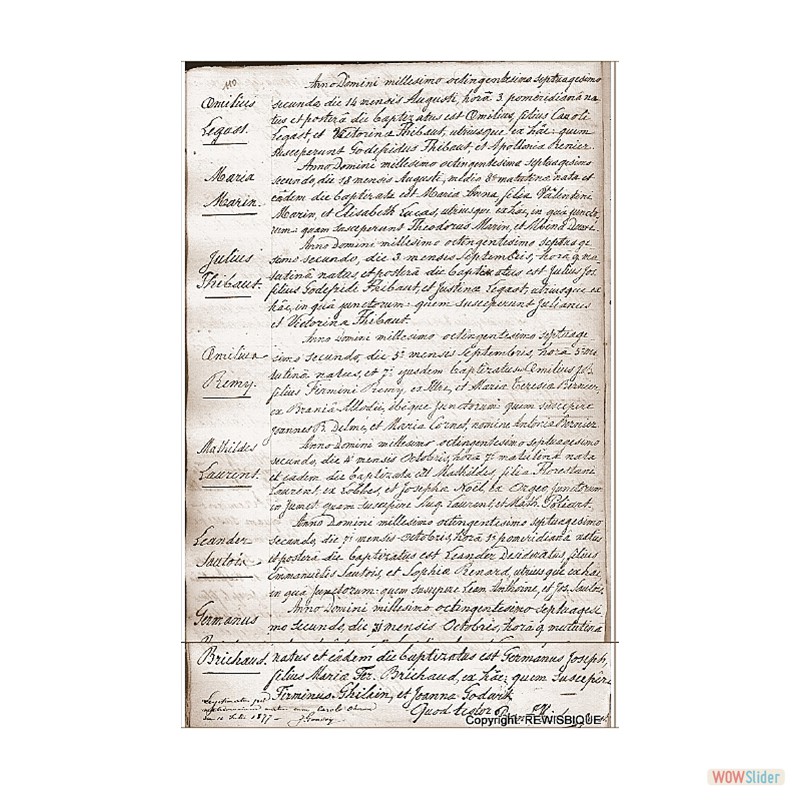 110
Anno Domini millesimo octingentesimo septuagesimo
Œmilius
Legast.
secundo die 14 mensis Augusti, horâ 3 pomeridianâ na
tus et posterâ die baptizatus est Œmilius, filius Caroli
Legast et Victorina Thibaut, utriusque ex hâc: quem
susceperunt Godefridus Thibaut, et Apollonia Renier.
Anno Domini millesimo octingentesimo septuagesimo
Maria
Marin.
secundo, die 18 mensis Augusti, mediâ 8â matutinâ nata et
eâdem die baptizata est Maria Anna, filia Valentini
Marin, et Elisabeth Lucas, utriusque ex hac, in quâ juncto
rum: quam susceperunt Theodorus Marin, et
Anno Domini millesimo octingentesimo septuage
Julius
Thibaut.
simo secundo, die 3 mensis Septembris, horâ 9 ma
tutinâ natus, et posterâ die baptizatus est Julius Jos.
filius Godefridi Thibaut, et Justina Legast, utriusque ex
hâc, in quâ junctorum: quem susceperunt Julianus
et Victorina Thibaut.
Anno Domini millesimo octingentesimo septuage
Œmilius
Remy.
simo secundo, die 5â mensis Septembris, horâ 5â ma
tutinâ natus, et 7â ejusdem baptizatus Œmilius Jos.
filius Firmini Remy, ex et Maria Teresia Bernier,
ex Braniâ Allodii, ibique junctorum: quem suscepere
Joannes B. Delmé, et Maria Cornet, nomine Antonia Bernier
Mathildes
Laurent.
Anno Domini millesimo octingentesimo septuagesimo
secundo, die 4â mensis Octobris, horâ 7â matutinâ nata
et eâdem die baptizata est Mathildes, filia Florestani
Laurent, ex Lobbes, et Josepha Noël, ex Orgeo junctorum
in Jumet quam suscepere Aug. Laurent, et Math. Poliart.
Anno Domini millesimo octingentesimo septuagesimo
Leander
Sautois
secundo, die 7â mensis Octobris, horâ 1â pomeridianâ natus
et posterâ die baptizatus est Leander Desideratus filius
Emmanuelis Sautois, et Sophia Renard, utriusque ex hac,
in qua junctorum: quem suscepere Leon. Anthoine, et Jos. Sautois.
Germanus
Anno Domini millesimo octingentesimo septuagesi
mo secundo, die 31 mensis Octobris, horâ 9 matutina
Brichaud.
natus et eâdem die baptizatus est Germanus Joseph,
filius Maria Ter. Brichaud, ex hâc: quem suscepere
Firminus Ghilain, et Joanna Godart
Quod testor
Legitimatus per
1877
Copyright: REWISBIQUE
WOWSlider